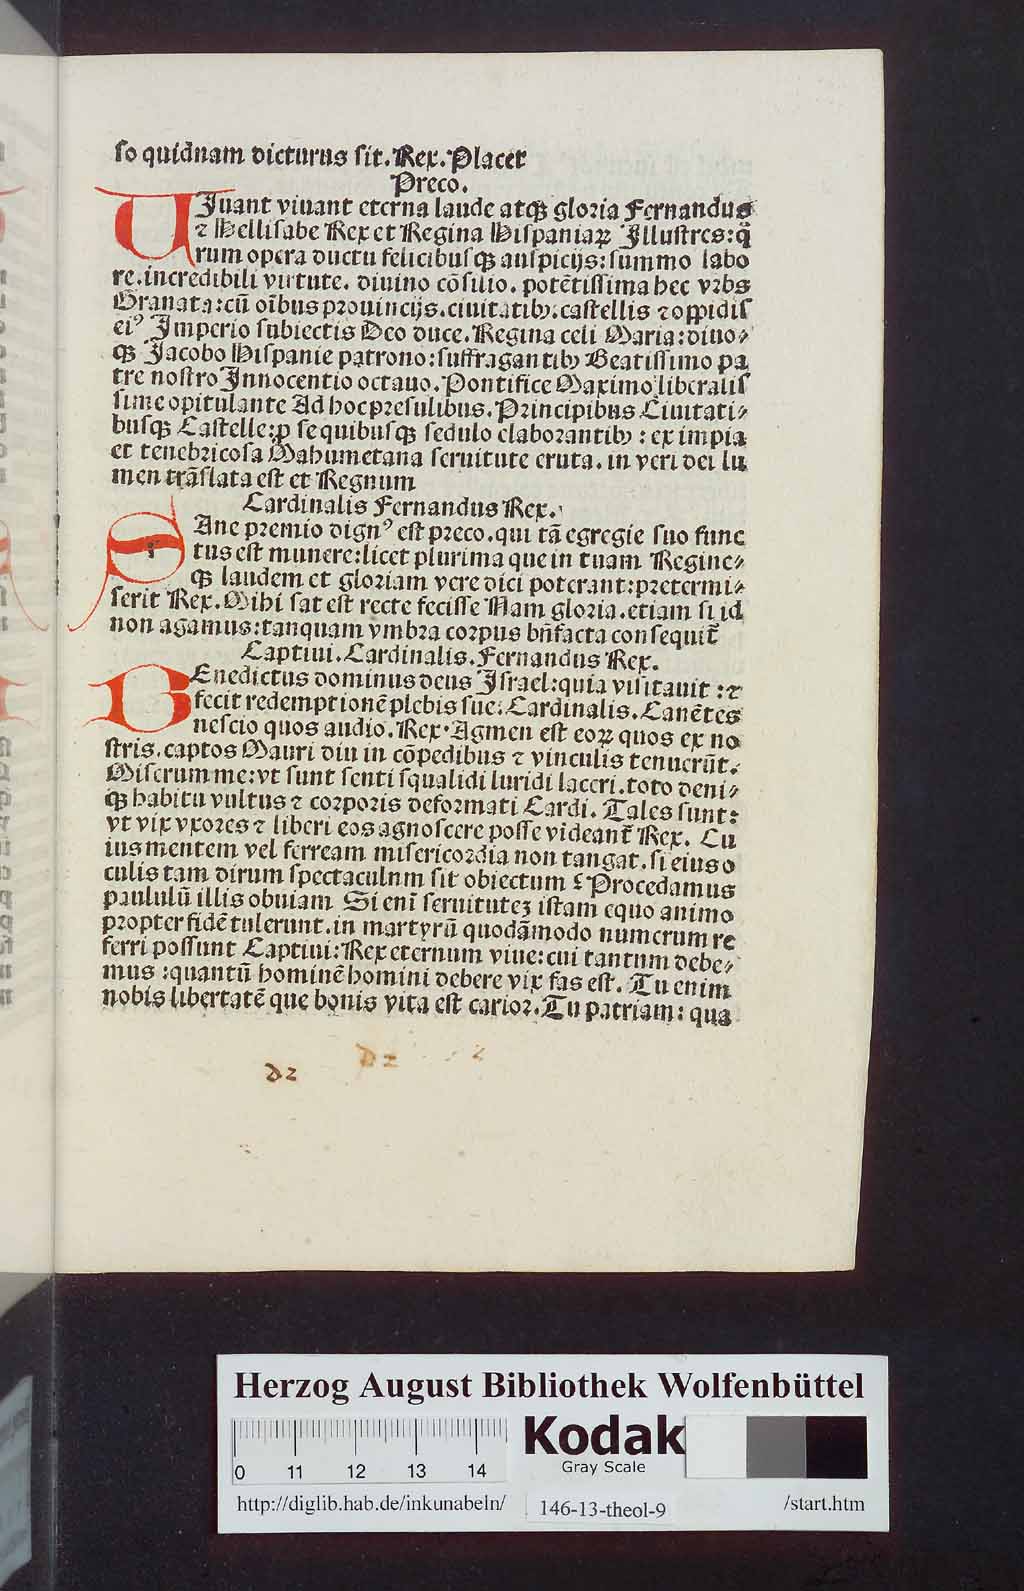 so quidnam dicturus sit. Rex. Placet
Preco.
UIuant viuant eterna laude atqꝫ gloria Fernandus
⁊ Hellisabe Rex et Regina Hispaniaꝝ Illustres: q̄
rum opera ductu felicibusqꝫ auspicijs: summo labo
re. incredibili virtute. diuino cōsilio. potētissima hec vrbs
Granata: cū oībus prouincijs. ciuitatibꝫ. castellis ⁊ oppidis
eiꝰ Imperio subiectis Deo duce. Regina celi Maria: diuo⸗
qꝫ Jacobo Hispanie patrono: suffragantibꝫ Beatissimo pa
tre nostro Innocentio octauo. Pontifice Maximo liberalis
sime opitulante Ad hoc presulibus. Principibus Ciuitati⸗
busqꝫ Castelle: ꝓ se quibusqꝫ sedulo elaborantibꝫ: ex impia
et tenebricosa Mahumetana seruitute eruta. in veri dei lu
men trāslata est et Regnum
Cardinalis Fernandus Rex.
SAne premio dignꝰ est preco. qui tā egregie suo func
tus est munere: licet plurima que in tuam Regine⸗
qꝫ laudem et gloriam vere dici poterant: pretermi⸗
serit Rex. Mihi sat est recte fecisse Nam gloria. etiam si id
non agamus: tanquam vmbra corpus bn̄facta consequit̄
Captiui. Cardinalis. Fernandus Rex.
BEnedictus dominus deus Israel: quia visitauit: ⁊
fecit redemptionē plebis sue. Cardinalis. Canētes
nescio quos audio. Rex. Agmen est eoꝝ quos ex no
stris. captos Mauri diu in cōpedibus ⁊ vinculis tenuerūt.
Miserum me: vt sunt senti squalidi luridi laceri. toto deni⸗
qꝫ habitu vultus ⁊ corporis deformati Cardi. Tales sunt:
vt vix vxores ⁊ liberi eos agnoscere posse videant̄ Rex. Cu
ius mentem vel ferream misericordia non tangat. si eius o
culis tam dirum spectaculnm sit obiectum ? Procedamus
paululū illis obuiam Si enī seruituteꝫ istam equo animo
propter fidē tulerunt. in martyrū quodāmodo numerum re
ferri possunt Captiui: Rex eternum viue: cui tantum debe⸗
mus: quantū hominē homini debere vix fas est. Tu enim
nobis libertatē que bonis vita est carior. Tu patriam: qua
d2 d2 2
Herzog August Bibliothek Wolfenbüttel
Kodak
Gray Scale
0 11 12 13 14
http://diglib.hab.de/inkunabeln/ 146-13-theol-9 /start.htm